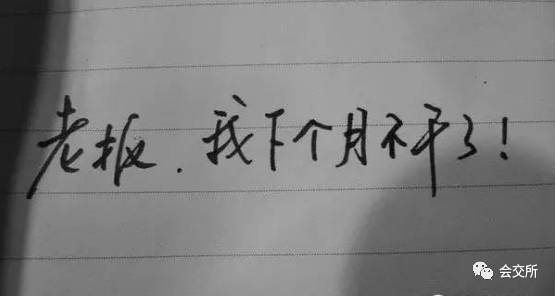 老板.我下个月不干了!
会交所